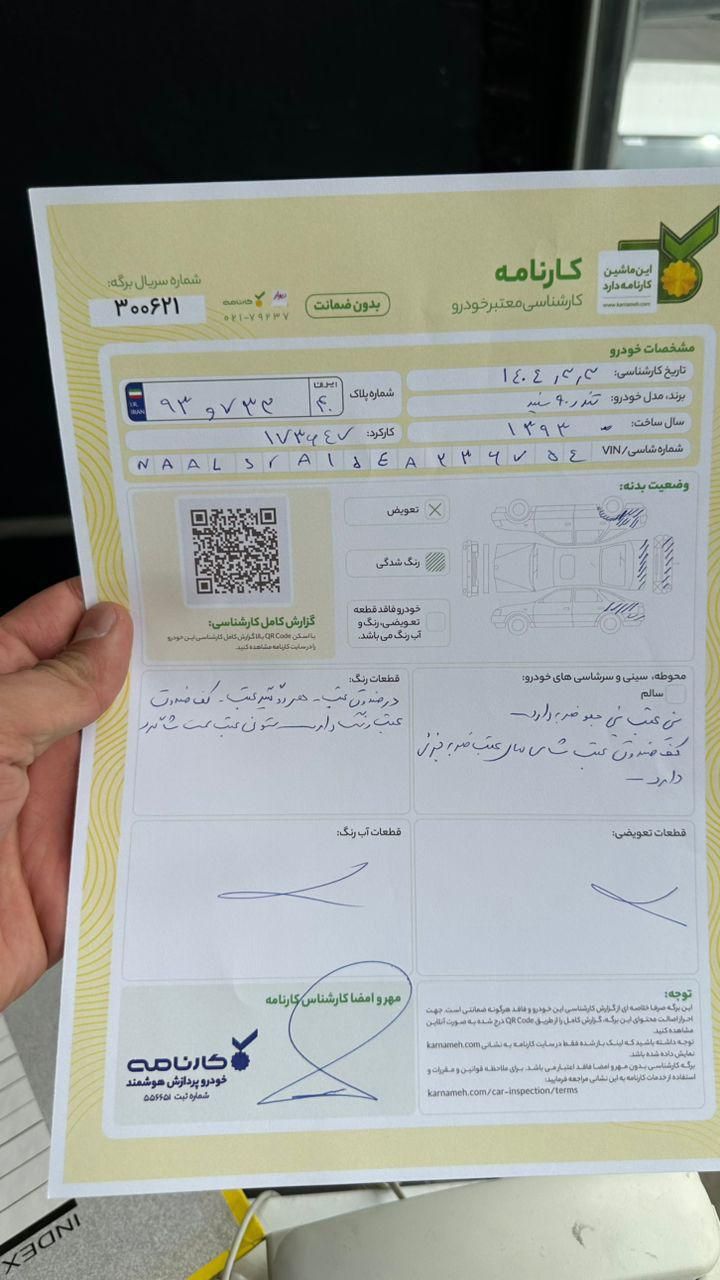 کارنامه
کارشناسی معتبر خودرو
این ماشین
کارنامه دارد
www.karnameh.com
بدون ضمانت
دیوار
کارنامه
۰۲۱-۷۹۲۳۷
شماره سریال برگه:
۳۰۰۶۲۱
مشخصات خودرو
تاریخ کارشناسی: ۱۴۰۴,۳,۳
برند، مدل خودرو: تندر ۹۰ سفید
سال ساخت: ۱۳۹۳
شماره پلاک
I.R.
IRAN
۹۳ و ۷۳۳
ایران
۴۰
کارکرد: ۱۷۳۶۴۷
شماره شاسی/VIN
وضعیت بدنه:
تعویض
رنگ شدگی
خودرو فاقد قطعه
تعویضی، رنگ و
آب رنگ می باشد.
گزارش کامل کارشناسی:
با اسکن QR Code بالا گزارش کامل کارشناسی این خودرو
را در سایت کارنامه مشاهده کنید.
محوطه، سینی و سرشاسی های خودرو:
سالم
سینی عقب سینی جلو ضربه دارد
کف صندوق عقب شاسی های عقب ضربه جزئی
دارد
قطعات رنگ:
در صندوق عقب - هر دو گلگیر عقب - کف صندوق
عقب رنگ دارد ستون عقب سمت شاگرد
قطعات تعویضی:
قطعات آب رنگ:
توجه:
این برگه صرفا خلاصه ای از گزارش کارشناسی این خودرو و فاقد هرگونه ضمانتی است. جهت
احراز اصالت محتوای این برگه، گزارش کامل را از طریق QR Code درج شده به صورت آنلاین
مشاهده کنید.
توجه داشته باشید که لینک باز شده فقط در سایت کارنامه به نشانی karnameh.com
نمایش داده شده باشد.
برگه کارشناسی بدون مهر و امضا فاقد اعتبار می باشد. برای ملاحظه قوانین و مقررات و
استفاده از خدمات کارنامه به این نشانی مراجعه فرمایید:
karnameh.com/car-inspection/terms
مهر و امضا کارشناس کارنامه
کارنامه
خودرو پردازش هوشمند
شماره ثبت ۵۵۶۶۵۱
INDEX